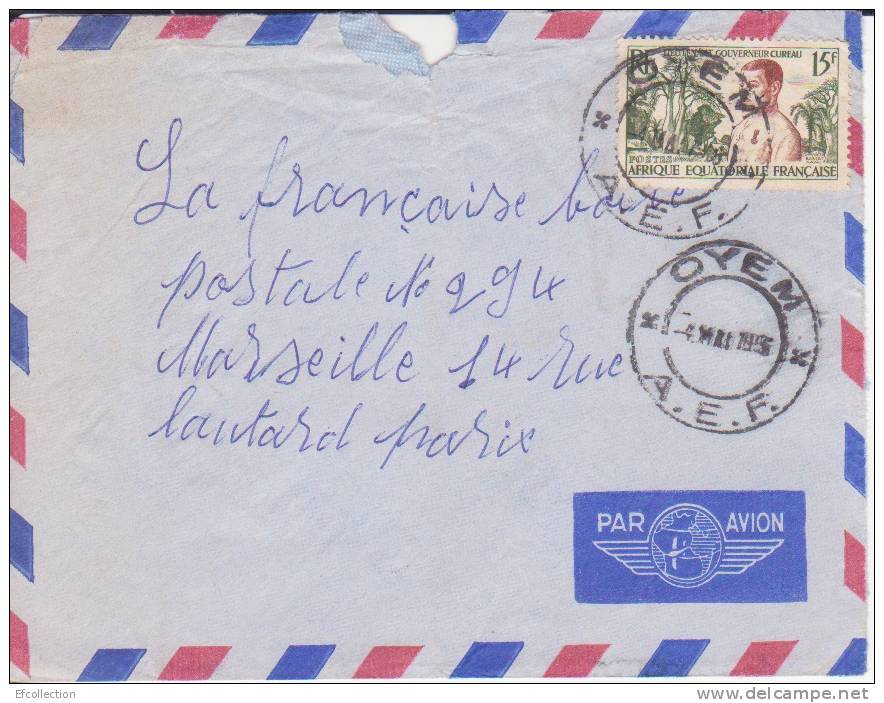 LIEUTENANT GOUVERNEUR CUREAU
RF
15F
POSTES
AFRIQUE EQUATORIALE FRANÇAISE
OYEM
A.E.F.
La française boire
postale No 294
Marseille 14 rue
lautard parix
OYEM
-4 MAI 1956
A.E.F.
PAR AVION
Efcollection
www.delcampe.net